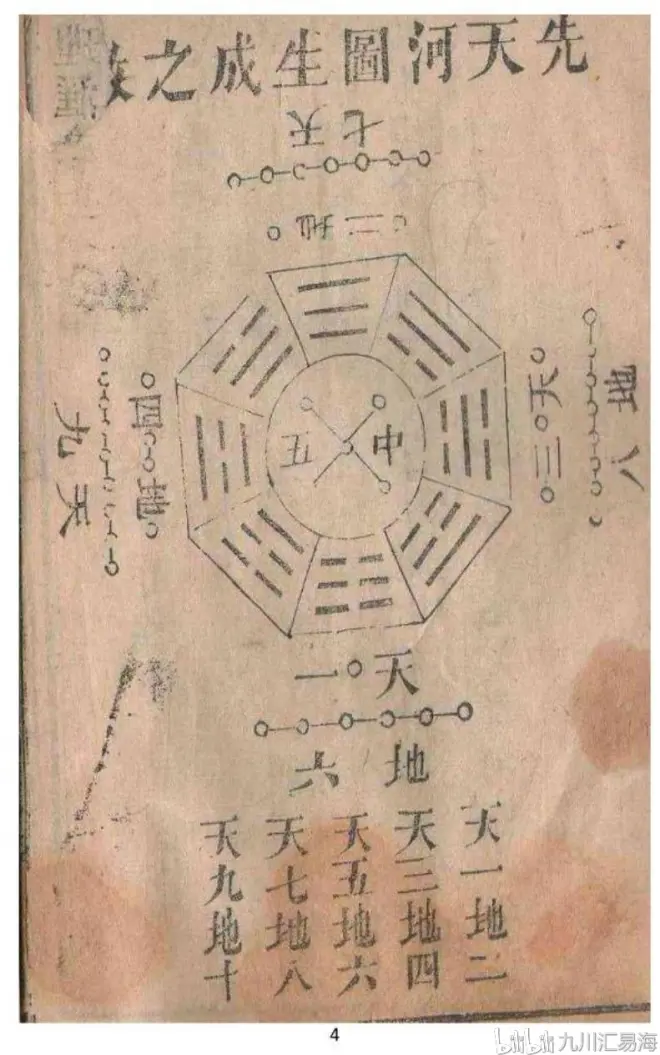 先天河圖生成之
天七
地二
天三
地八
地四
天九
中五
天一
地六
天一地二
天三地四
天五地六
天七地八
天九地十
4
bilibili 九川汇易海